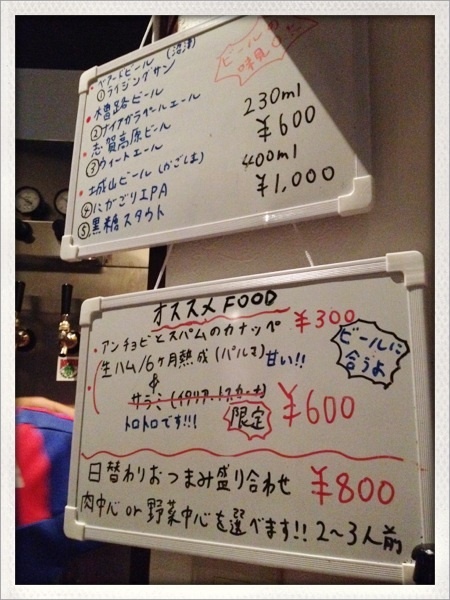 ・ベアードビール (沼津)
①ライジングサン
・木曽路ビール
②ナイアガラペールエール
・志賀高原ビール
③ウィートエール
・城山ビール (かごしま)
④にがごりIPA
⑤黒糖スタウト
ビールの
味見
230ml
¥600
400ml
¥1,000
オススメFOOD
・アンチョビとスパムのカナッペ ¥300
・生ハム/6ヶ月熟成(パルマ) 甘い!!
&
サラミ(イタリア・トスカーナ)
トロトロです!!! 限定 ¥600
ビールに
合うよ
日替わりおつまみ盛り合わせ ¥800
肉中心 or 野菜中心を選べます!! 2〜3人前